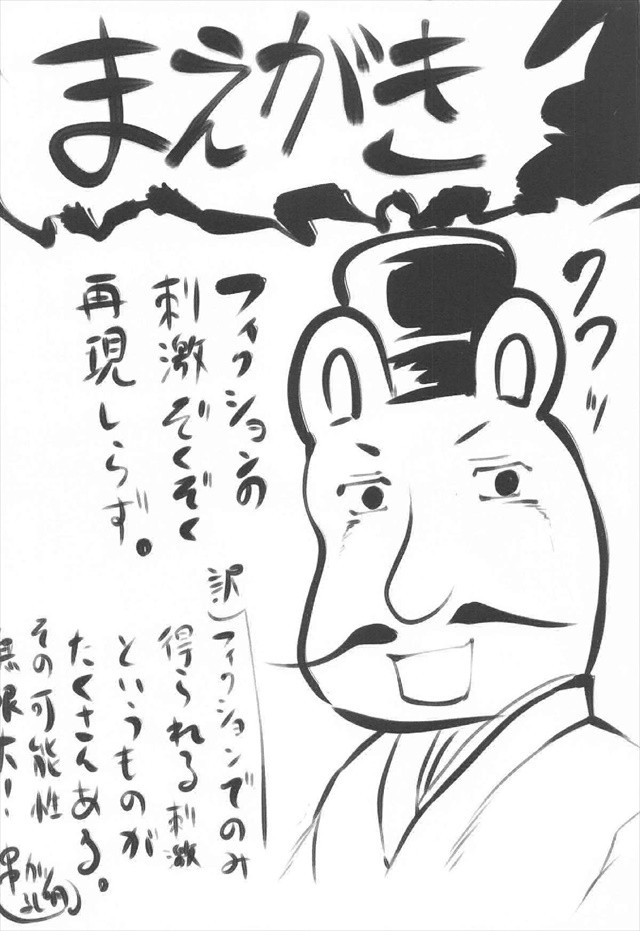 まえがき
ワフッ
フィクションの
刺激ぞくぞく
再現しらず。
訳
フィクションでのみ
得られる刺激
というものが
たくさんある。
その可能性
無限大!